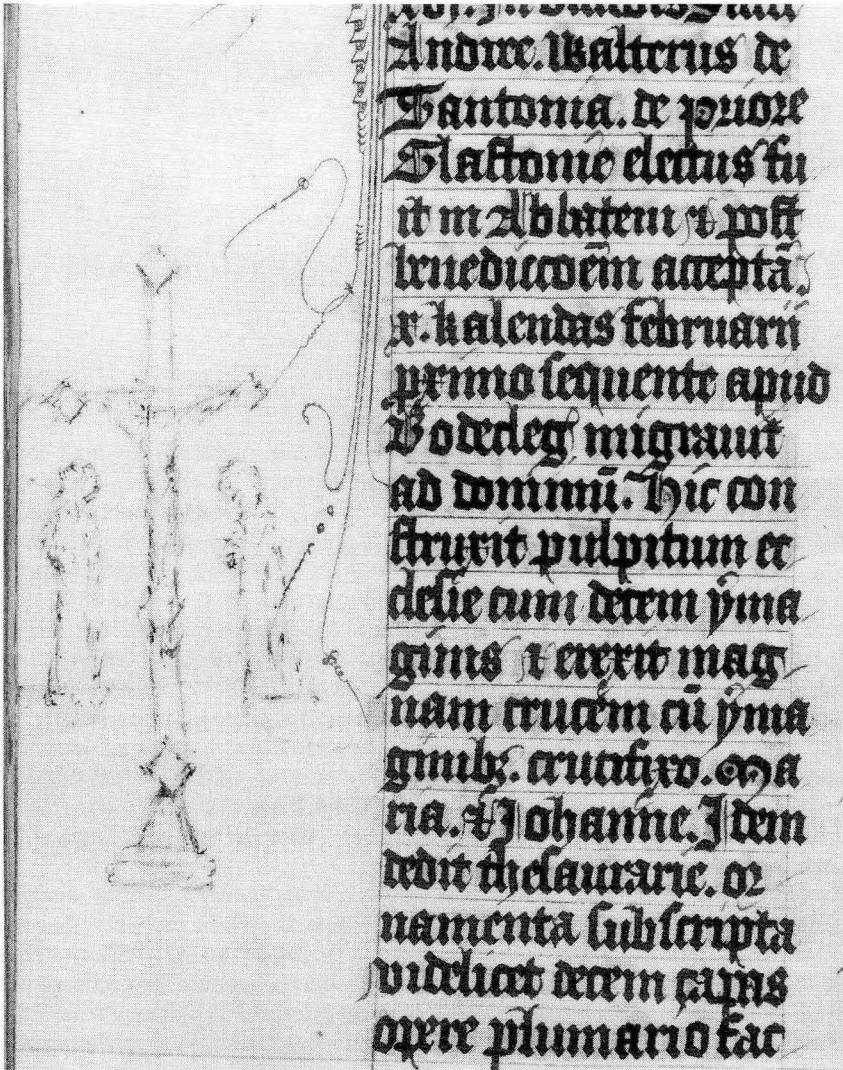 Andree. Walterus de
Tantonia. de priore
Glastonie electus fu
it in Abbatem & post
benediccōem acceptā.
x. kalendas februarii
primo sequente apud
Dodecleg migrauit
ad dominū. Hic con
struxit pulpitum ec
clesie cum decem yma
ginis & erexit mag
nam crucem cū yma
ginibꝫ. crucifixo. Ma
ria. & Johanne. Idem
dedit thesaurarie. or
namenta subscripta
videlicet decem capas
opere plumario fac